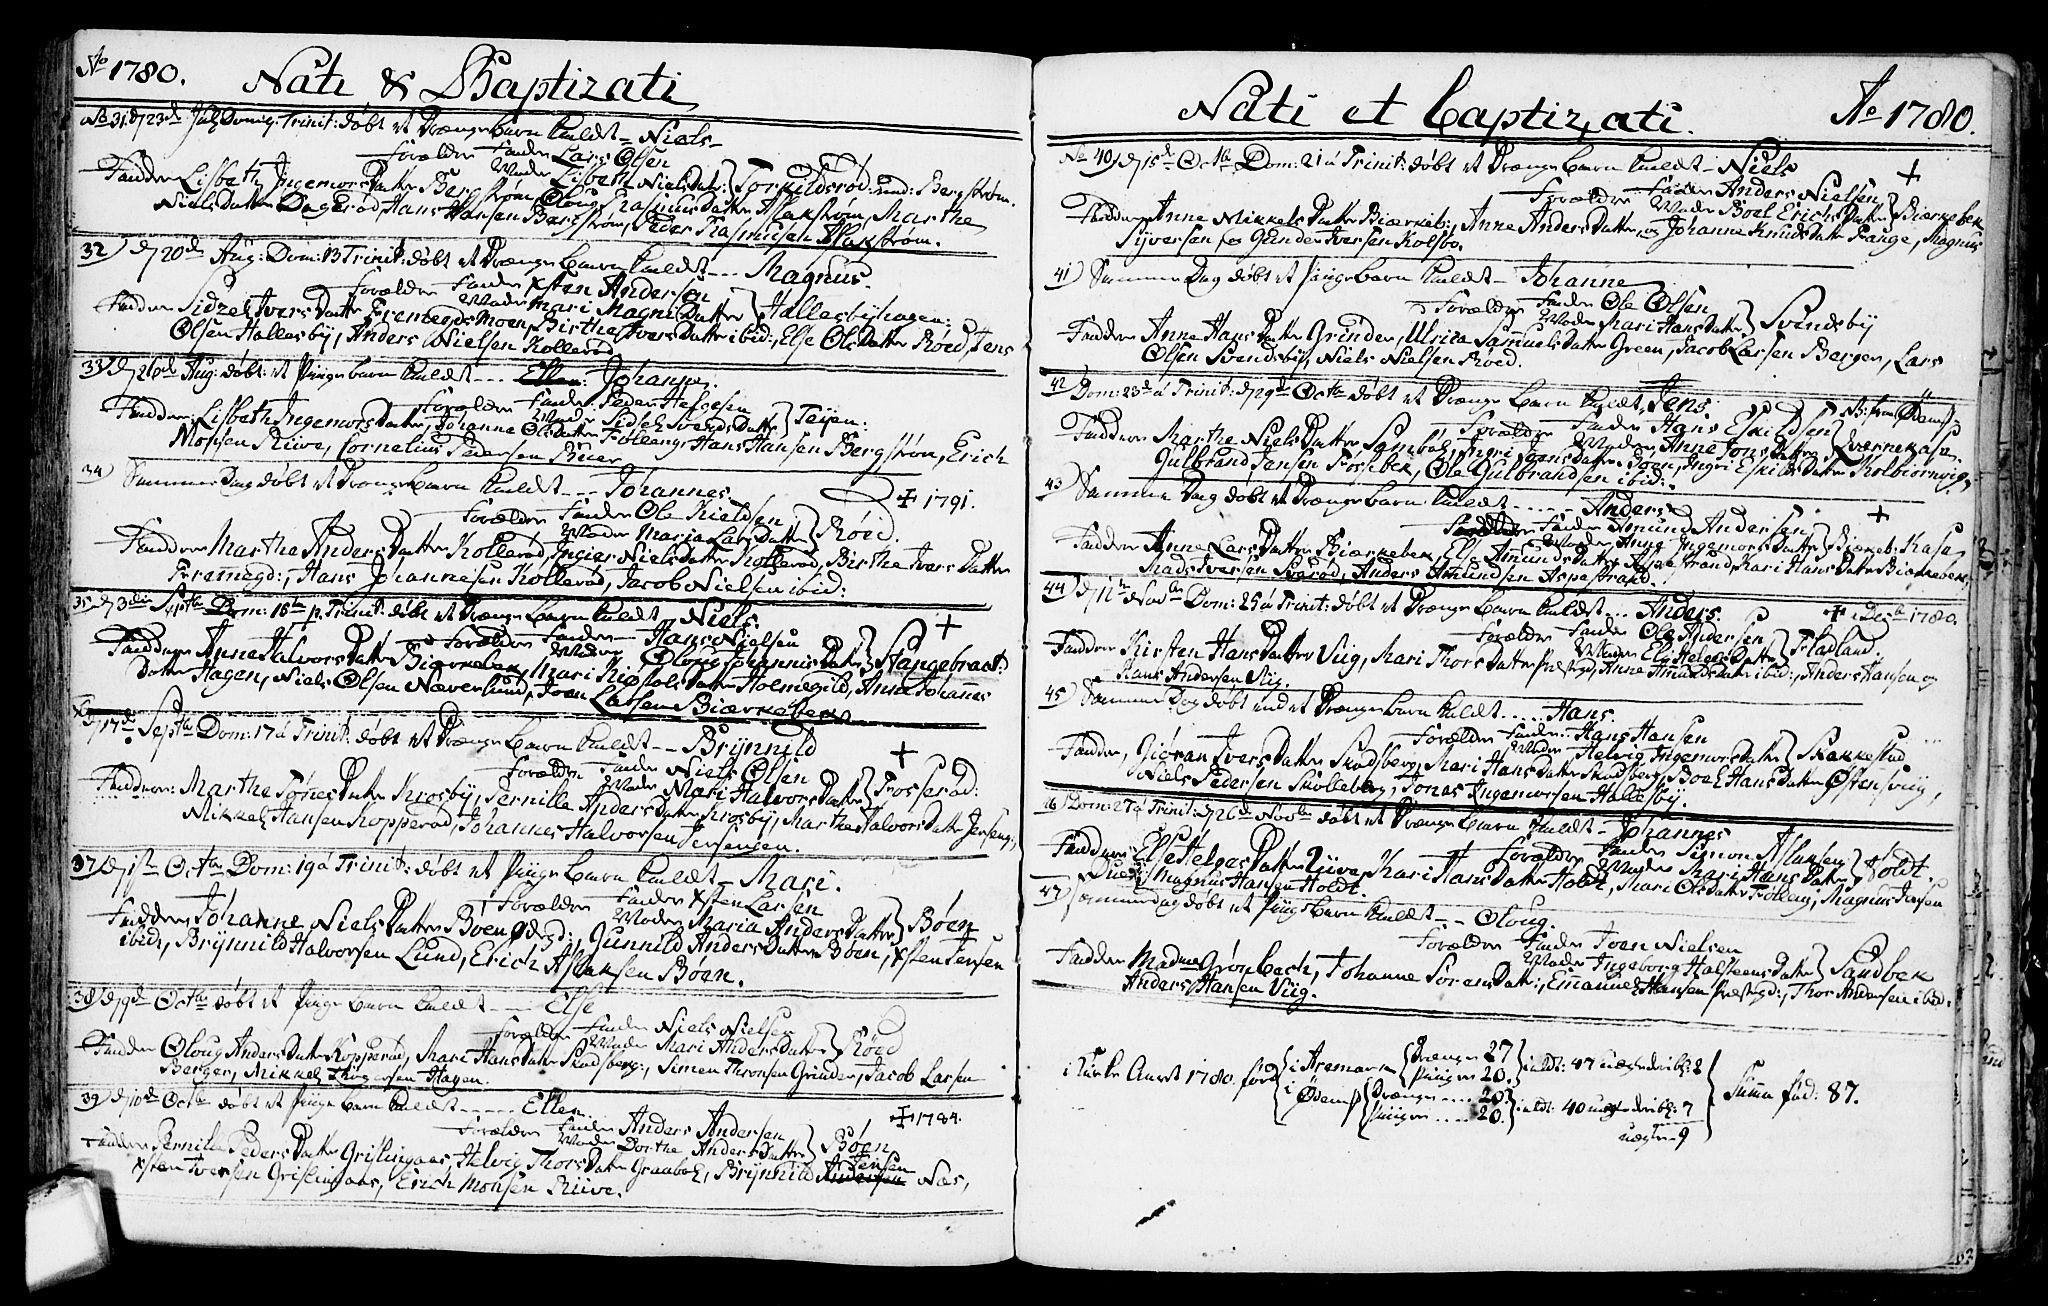 Ao 1780. Nati & Baptizati
No 31 d 23de July Domin: Trinit: døbt et Drænge Barn kaldet - Niels -
Forældre Fader Lars Olsen
Moder Lisbeth Niels Dat: } Torkildsrød
Faddere Lisbeth Ingemors Datter Bergstrøm, Oloug Rasmus Datter Aslakstrøm, Marthe
Niels Datter Dagerød, Hans Hansen Bergstrøm, Peder Rasmusen Aslakstrøm.
32) d 20de Aug: Dom: 13 Trinit: døbt et Drænge Barn kaldet - - - Magnus.
Forældre Fader Xsten Andersen
Moder Mari Magni Datter } Hallesbyhagen:
Faddere Sidzel Ivers Datter Fremegdsmoen, Birthe Ivers Datter ibid:, Else Ols Datter Røed, Jens
Olsen Hallesby, Anders Nielsen Kollerød
33) d 26de Aug: døbt: et Pige Barn kaldet - - - Ellen: Johanne.
Forældre Fader Peder Helgesen
Moder Sidsel Svends Datter } Teyen:
Faddere: Lisbeth Ingemors Datter, Johanne Ols Datter Follang, Hans Hansen Bergstrøm, Erich
Monsen Riiwe, Cornelius Pedersen Buer
34) Samme Dag døbt et Drænge Barn kaldet - - - Johannes + 1791.
Forældre Fader Ole Kieldsen
Moder Maria Lars Datter } Røed.
Faddere Marthe Anders Datter Kollerød, Ingier Niels Datter Kollerød, Birthe Ivers Datter
Fremegd:, Hans Johannesen Kollerød, Jacob Nielsen ibid:
35) d 3die Septbr Dom: 15de p. Trinit: døbt et Drænge Barn kaldet Niels. +
Forældre Fader - Hans Nielsen
Moder Oloug Johannis Datter } Stangebraat:
Faddere Anne Halvors Datter Biærkebek, Mari Kiøstols Datter Holmegild, Anne Johannes
Datter Hagen, Niels Olsen Næverlund, Joen Larsen Biærkebek
d 17de Septbr Dom: 17 á Trinit: døbt et Drænge Barn kaldet - - Brynnild +
Forældre Fader Niels Olsen
Moder Mari Halvors Datter } Fosserød:
Faddere: Marthe Tønes Datter Krosby, Pernille Anders Datter Krosby, Marthe Halvors Datter Jerseng:,
Mikkel Hansen Kopperød, Johannes Halvorsen Jersengen.
37) d 1ste Octbr Dom: 19 á Trinit: døbt et Pige Barn kaldet - Mari.
Forældre Fader Xsten Larsen
Moder Maria Anders Datter } Bøen
Faddere Johanne Niels Datter Bøen, Gunnild Anders Datter Bøen, Xsten Jensen
ibid, Brynnild Halvorsen Lund, Erich Aslaksen Bøen.
38) d 9de Octbr døbt et Pige Barn kaldet - - - Else
Forældre Fader Niels Nielsen
Moder Mari Anders Datter } Røed
Faddere Oloug Anders Datter Kopperød, Mari Hans Datter Skudsberg:, Simen Thronsen Grinder, Jacob Larsen
Berger, Mikkel Hagen.
39) d 10de Octbr døbt et Pige Barn kaldet - - - - - Ellen. + 1784.
Forældre Fader Anders Andersen
Moder Dorthe Anders Datter } Bøen
Faddere Pernille Peders Datter Grislingaas, Helvig Thors Datter Graabek, Brynnild Andersen Jensen Næs,
Xsten Iversen Grislingaas, Erich Monsen Riive.
Nati et Baptizati. Ao 1780.
No 40) d 15de Octbr Dom: 21 á Trinit: døbt et Drænge Barn kaldet - Niels +
Forældre Fader Anders Nielsen
Moder Boel Erichs Datter } Biærkebek
Faddere Anne Mikkels Datter Biærkeb:, Anne Anders Datter, Johanne Knuds Datter Fange, Magnus
Syversen og Gunder Iversen Kolsbo.
41) Samme Dag døbt et Pige Barn kaldet - Johanne
Forældre Fader Ole Olsen
Moder Mari Hans Datter } Svendsby
Faddere Anne Hans Datter Grinder, Ulrica Samuels Datter Green, Jacob Larsen Berger, Lars
Olsen Svendsby, Niels Nielsen Røed.
42) Dom: 23de á Trinit: d 29de Octbr døbt et Drænge Barn kaldet Jens.
Forældre Fader Hans Eskildsen
Moder Anne Jons Datter } Kværnekasen
Faddere Marthe Niels Datter Sambek, Ingri Datter Joen, Ingri Eskilds Datter Kolbiørnviig,
Gulbrand Jensen Fosebek, Ole Gulbrandsen ibid:
43) Samme Dag døbt et Drænge Barn kaldet - - - - - Anders +
Forældre Fader Amund Andersen
Moder Anne Ingemors Datter } Biærkeb: Kasen
Faddere Anne Lars Datter Biærkebek, Else Amunds Datter Aspestrand, Mari Hans Datter Biærkebek,
Mads Iversen Svarød, Anders Amundsen Aspestrand.
44) d 12te Novbr Dom: 25 á Trinit: døbt et Drænge Barn kaldet - - Anders. + Desbr 1780.
Forældre Fader Ole Andersen
Moder Eli Helges Datter } Fladland.
Faddere Kirsten Hans Datter Viig, Mari Thors Datter Præstegd, Anne Amunds Datter ibid:, Anders Hansen og
Hans Andersen Viig.
45) Samme Dag døbt et Drænge Barn kaldet - - - - Hans.
Forældre Fader Hans Hansen
Moder Helvig Ingemors Datter } Skakkestad
Faddere, Giøran Ivers Datter Skudsberg, Mari Hans Datter Skudsberg, Boel Hans Datter Østensviig,
Niels Pedersen Skolleborg, Jonas Ingemorsen Hallesby.
46) Dom: 27 á Trinit: d 26de Novbr døbt et Drænge Barn kaldet - Johannes
Forældre Fader Simon Aslaksen
Moder Mari Hans Datter } Holdt.
Faddere Else Helges Datter Riive, Kari Hans Datter Holdt, Mari Ols Datter Tolberg, Magnus Jensen
Magnus Hansen Holdt.
47) Samme Dag døbt et Pige Barn kaldet - - Oloug.
Forældre Fader Joen Nielsen
Moder Ingeborg Halsteens Datter } Sandbek
Faddere Madme Grønbech, Johanne Sørens Datter:, Emanuel Hansen Præstegd:, Thor Andersen ibid:
Anders Hansen Viig.
i dette Aaret 1780. fød { i Aremark { Drænger 27 Piiger 20. } ialdt: 47 uægte deribl: 2
i Ødem { Drænger - - - 20. Piiger - - - 20. } ialdt: 40 uægte deribl: 7
uægte - 9
Summa fød: 87.